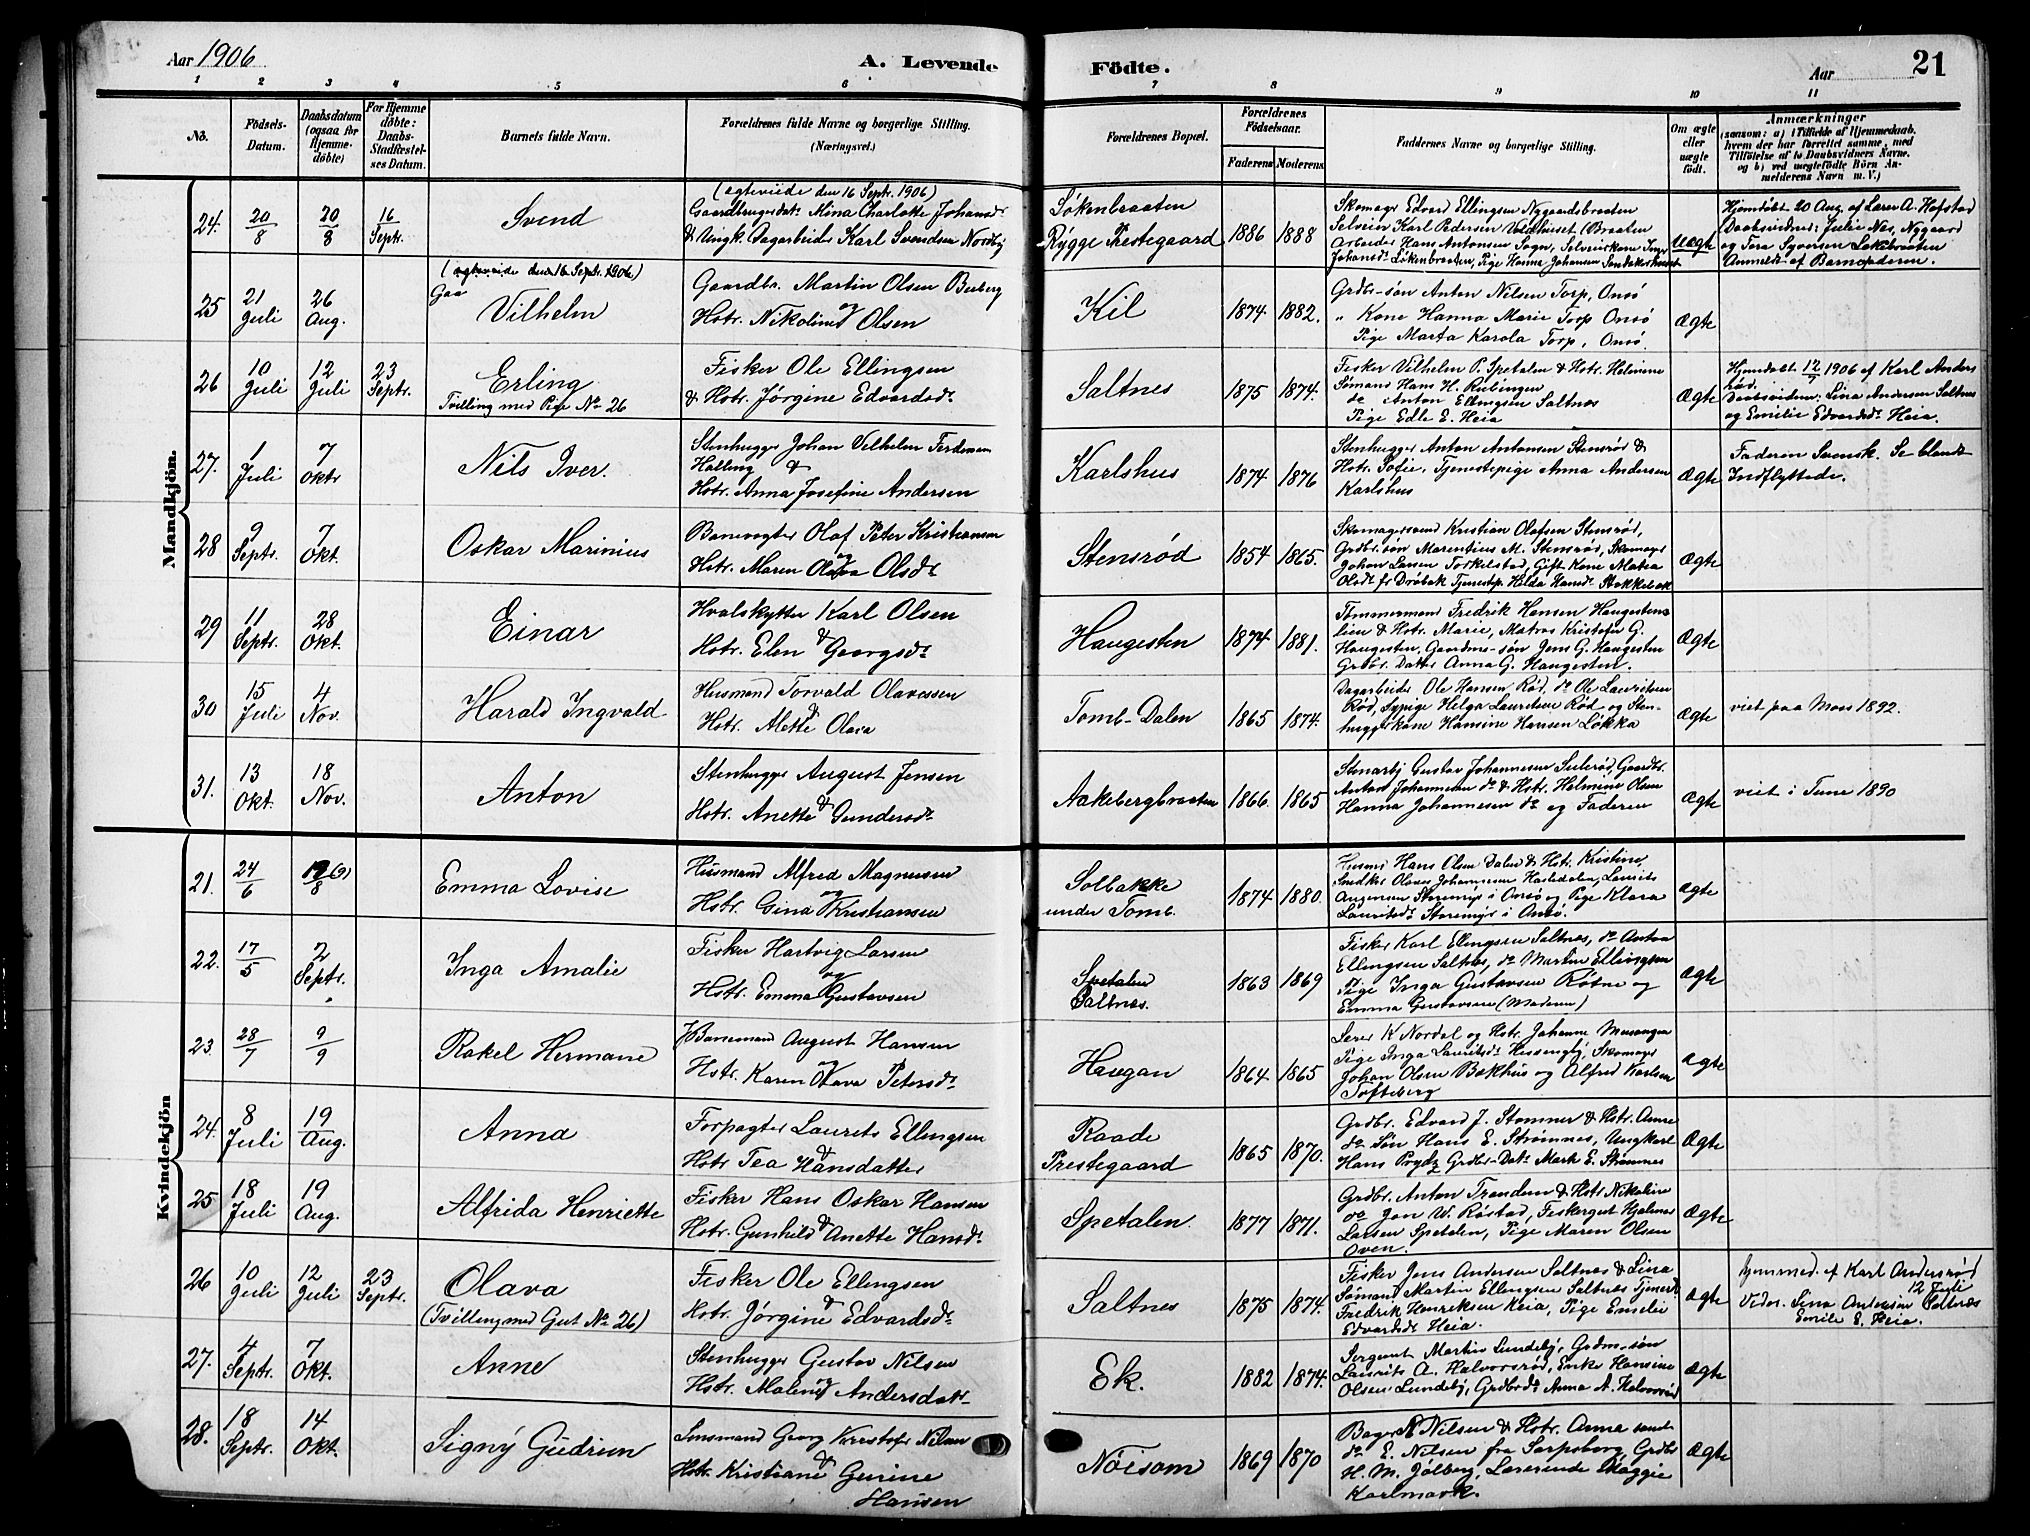 Aar 1906
A. Levende Födte.
Aar 21
1 2 3 4 5 6 7 8 9 10 11
No.
Födsels-Datum.
Daabsdatum (ogsaa for Hjemmedöbte)
For Hjemmedöbte: Daabs-Stadfæstelses Datum.
Barnets fulde Navn.
Forældrenes fulde Navne og borgerlige Stilling.
(Næringsvei.)
Forældrenes Bopæl.
Forældrenes Födselsaar.
Faderens Moderens
Faddernes Navne og borgerlige Stilling.
Om ægte eller uægte födt.
Anmærkninger
(saasom: a) i Tilfælde af Hjemmedaab,
hvem der har forrettet samme, med
Tilföielse af to Daabsvidners Navne,
og b) ved uægtefödte Börn Anmelderens Navn m. V.)
Mandkjön.
24. 20/8 20/8 16 Septr. Svend
(ægteviede den 16 Septr. 1906)
Gaardbrugerdatr. Mina Charlotte Johansdr.
& Ungk. Dagarbeider Karl Svendsen Nordby
Løkenbraaten
Rygge Prestegaard 1886 1888
Skomager Edvard Ellingsen Nygaardsbraaten
Selveier Karl Pedersen
Arbeider Hans Antonsen Sogn, Selveierkone
Johansdr. Løkenbraaten, Pige Hanna Johansen
Uægte
Hjemdøbt 20 Aug. af Lærer A. Hofstad
Daabsvidner: Julie Nes, Nygaard
Anmeldt af Barnefaderen.
25 21 Juli 26 Aug.
(ægteviede den 16 Septr. 1906)
Gaa
Vilhelm
Gaardbr. Martin Olsen Berberg
og
Hstr. Nikoline Olsen
Kil 1874 1882.
Grdbr-søn Anton Nilsen Torp, Onsö
" Kone Hanna Marie Torp Onsö
Pige Marta Karola Torp, Onsö.
Ægte
26 10 Juli 12 Juli 23 Septr. Erling
Tvilling med Pige No 26
Fisker Ole Ellingsen
& Hstr. Jørgine Edvardsdr.
Saltnes 1875 1874.
Fisker Vilhelm P. Spetalen & Hstr. Helmine
Sömand Hans H.
do Anton Ellingsen Saltnes
Pige Edle E. Heia
Ægte
Hjemdøbt 12/7 1906 af Karl Andersrød.
Daabsvidner: Lina Andersen Saltnes
og Emilie Edvardsdr. Heia.
27. 1 Juli 7 Oktr Nils Iver.
Stenhugger Johan Vilhelm Ferdinan
Halling &
Hstr. Anna Josefine Andersen
Karlshus 1874 1876
Stenhugger Anton Antonsen Stensrød &
Hstr. Sofie, Tjenestepige Anna Andersen
Karlshus
Ægte
Faderen Svensk. Se blandt
Indflyttede.
28 9 Septr. 7 Okt. Oskar Marinius
Banevogter Olaf Peter Kristiansen
og
Hstr. Maren Olava Olsdr.
Stensrød 1854 1865.
Skomagersvend Kristian Olafsen Stensrød,
Grdbr. søn Marentius M. Stensrød, Skomager
Johan Larsen Torkelstad, Gift Kone Matea
Olsdr. fr Drøbak Tjenestep. Hilda Hansdr. Stokkebæk
Ægte
29 11 Septr. 28 Okt. Einar
Hvalskytter Karl Olsen
&
Hstr. Elen Georgsdr.
Haugesten 1874 1881.
Tömmermand Fredrik Hansen Haugestenslien
& Hstr. Marie, Matros Kristofer G.
Haugesten, Gaardm-søn Jens G. Haugesten
Grdbr. Datter Anna G. Haugesten.
Ægte
30 15 Juli 4 Nov. Harald Ingvald
Husmand Torvald Olavessen
&
Hstr. Alette Olava
Tomb-Dalen 1865 1874.
Dagarbeider Ole Hansen Rød, do Ole Lauritsen
Rød, Sypige Helga Lauritsen Rød og Stenhuggerkone
Hansine Hansen Løkka
Ægte
viet paa Moss 1892.
31. 13 Okt. 18 Nov. Anton
Stenhugger August Jensen
&
Hstr. Anette Gundersdr.
Aakebergbraaten 1866. 1865
Stenarbj Gustav Johannesen Sulerød, Gaardbr.
Antard Johannesen do & Hstr. Helmine Olsen
Hanna Johannesen do og Faderen
Ægte
viet i Tune 1890
Kvindekjön
21. 24/6 19/8 Emma Lovise
Husmand Alfred Magnusen
og
Hstr. Gina Kristiansen
Solbakke
under Tomb. 1874 1880.
Husmd Hans Olsen Dalen & Hstr. Kristine,
Snedker Olaves Johannesen Hasledalen, Laurits
Augensen Storemyr i Onsø og Pige Klara
Lauritsdr. Storemyr i Onsø.
Ægte
22. 17/5 2 Septr. Inga Amalie
Fisker Hartvig Larsen
og
Hstr. Emma Gustavsen
Spetalen
Saltnes. 1863 1869
Fisker Karl Ellingsen Saltnes, do Anton
Ellingsen Saltnes, do Martin Ellingsen
Pige Inga Gustavsen Rötne og
Emma Gustavsen (Moderen)
Ægte
23. 28/7 9/9 Rakel Hermane
Banemand August Hansen
og
Hstr. Karen Olava Petersdr.
Haugan 1864 1865
Lærer K Nordal og Hstr. Johanne
Pige Inga Lauritsdr. Hessengby, Skomager
Johan Olsen Bakhus og Alfred Karlsen
Tofteberg
Ægte
24. 8 Juli 19 Aug. Anna
Forpagter Laurits Ellingsen
&
Hstr Tea Hansdatter
Raade
Prestegaard 1865 1870.
Grdbr. Edvard J. Strømnes & Hstr. Anne
do Søn Hans E. Strømnes, Ungkarl
Hans Prydz Grdbr-Datr. Marth E. Strømnes
Ægte
25 18 Juli 19 Aug. Alfrida Henriette
Fisker Hans Oskar Hansen
&
Hstr. Gunhild Anette Hansdr.
Spetalen. 1877 1871.
Grdbr. Anton Trondsen & Hstr Nikoline
do Jon W. Röstad, Fiskergut Hjalmar
Larsen Spetalen, Pige Maren Olsen
Oven.
Ægte
26 10 Juli 12 Juli 23 Septr. Olava
(Tvilling med Gut No 26)
Fisker Ole Ellingsen
&
Hstr. Jörgine Edvardsdr.
Saltnes 1875 1874.
Fisker Jens Andersen Saltnes & Lina
Sömand Martin Ellingsen Saltnes
Fredrik Henriksen Heia, Pige Emelie
Edvardsdr. Heia.
Ægte
hjemmed. af Karl Andersrød
12 Juli
Vidner. Lina Andersen Saltnes
Emilie E. Heia.
27. 4 Septr. 7 Okt. Anne
Stenhugger Gustav Nilsen
og
Hstr. Malene Andersdatr.
Ek. 1882 1874.
Sergeant Martin Lundeby, Grdm. søn
Laurits A. Halvorsrød, Enke Hansine
Olsen Lundeby, Grdbrdr. Anna A. Halvorsrød
Ægte
28. 18 Septr. 14 Okt. Signy Gudrun
Georg Kristofer Nilsen
&
Hstr. Kristiane Gurine
Hansen
Nöisom 1869 1870
Bager Nilsen & Hstr. Anna samt
do E. Nilsen fra Sarpsborg, Grdbr
H. M. Jölberg, Lærerinde Maggie
Karlmark.
Ægte